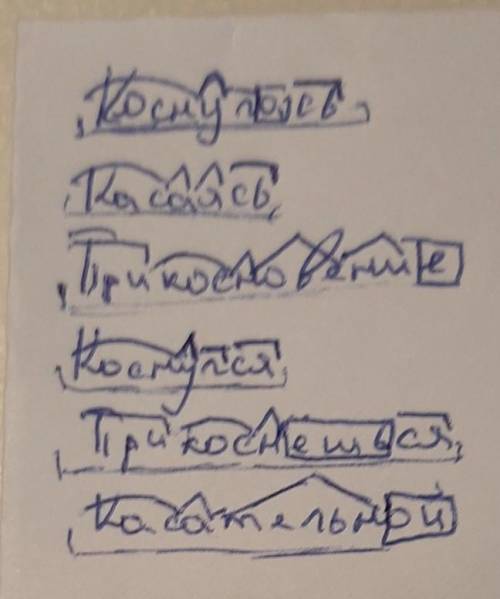 Коснулось
Касаясь
Прикосновение
Коснулся
Прикоснешься
Касательной